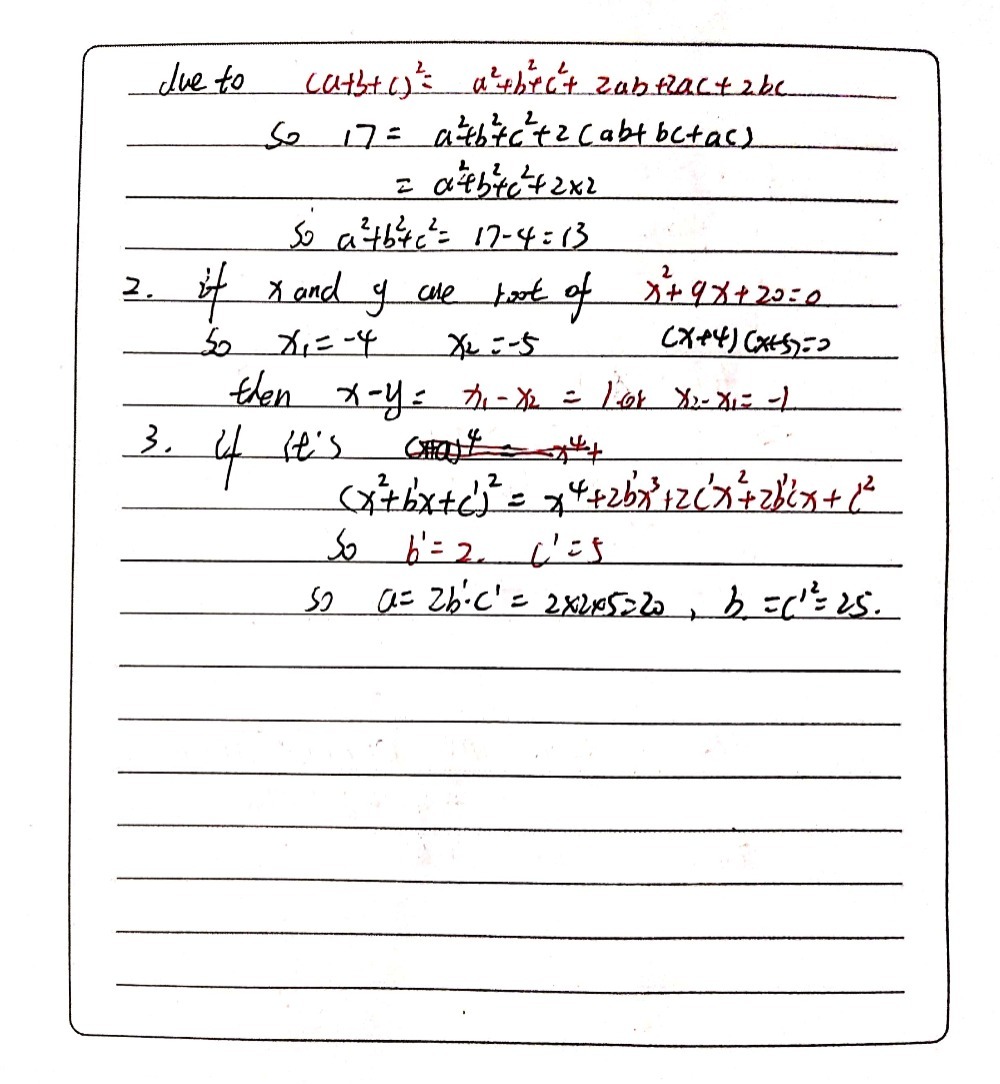 due to (a+b+c)²= a²+b²+c²+ 2ab+2ac+2bc
So 17 = a²+b²+c²+2(ab+bc+ac)
= a²+b²+c²+2×2
So a²+b²+c²= 17-4=13
2. if x and y are root of x²+9x+20=0
So x₁=-4 x₂=-5 (x+4)(x+5)=0
then x-y= x₁-x₂ = 1 or x₂-x₁= -1
3. if it's
(x²+b'x+c')² = x⁴+2b'x³+2c'x²+2b'c'x+c'²
So b'=2. c'=5
so a= 2b'·c' = 2×2×5=20 , b =c'²=25.